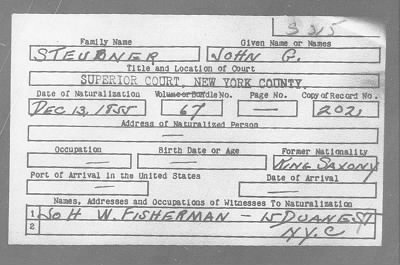 S 315
Family Name Given Name or Names
STEUBNER JOHN G.
Title and Location of Court
SUPERIOR COURT, NEW YORK COUNTY.
Date of Naturalization Volume or Bundle No. Page No. Copy of Record No.
DEC 13, 1855 67 — 202
Address of Naturalized Person
—
Occupation Birth Date or Age Former Nationality
— — KING SAXONY
Port of Arrival in the United States Date of Arrival
— —
Names, Addresses and Occupations of Witnesses To Naturalization
1 JOH W. FISHERMAN — 15 DUANE ST
2 N.Y.C